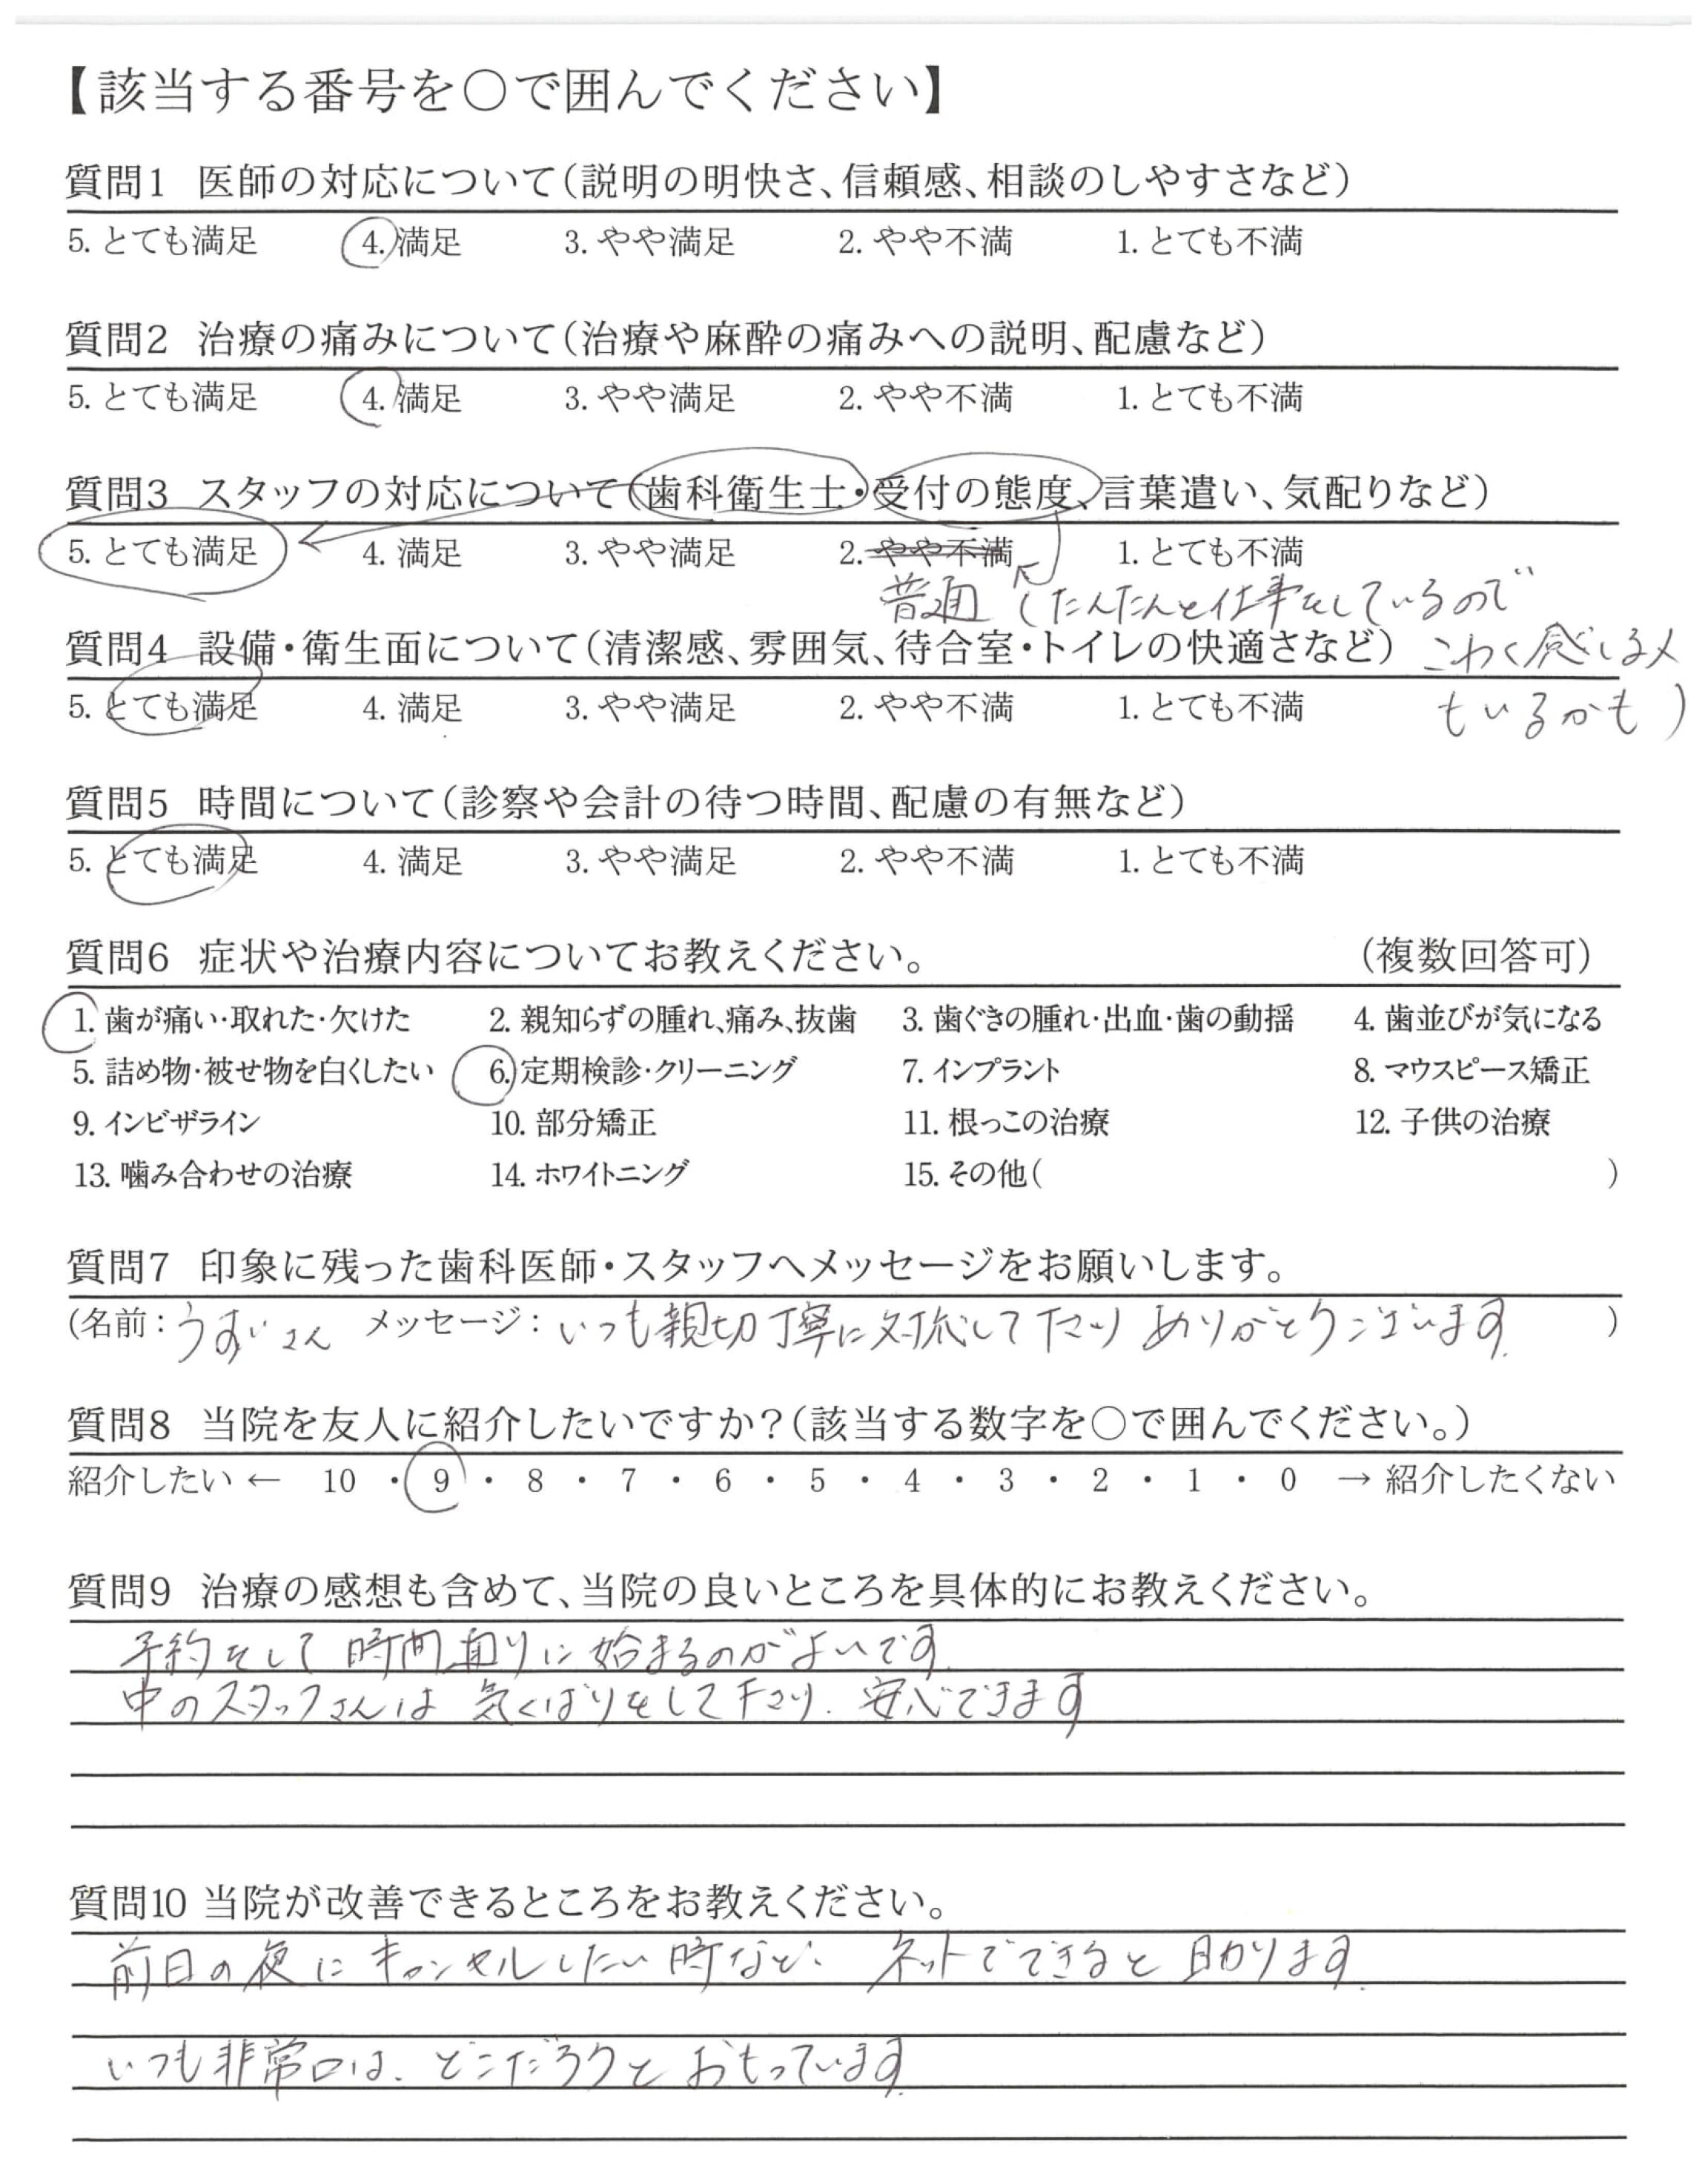 【該当する番号を○で囲んでください】
質問1 医師の対応について（説明の明快さ、信頼感、相談のしやすさなど）
5. とても満足 4. 満足 3. やや満足 2. やや不満 1. とても不満
質問2 治療の痛みについて（治療や麻酔の痛みへの説明、配慮など）
5. とても満足 4. 満足 3. やや満足 2. やや不満 1. とても不満
質問3 スタッフの対応について（歯科衛生士・受付の態度、言葉遣い、気配りなど）
5. とても満足 4. 満足 3. やや満足 2. やや不満 1. とても不満
普通（たんたんと仕事をしているので
こわく感じる人
もいるかも）
質問4 設備・衛生面について（清潔感、雰囲気、待合室・トイレの快適さなど）
5. とても満足 4. 満足 3. やや満足 2. やや不満 1. とても不満
質問5 時間について（診察や会計の待つ時間、配慮の有無など）
5. とても満足 4. 満足 3. やや満足 2. やや不満 1. とても不満
質問6 症状や治療内容についてお教えください。 （複数回答可）
1. 歯が痛い・取れた・欠けた 2. 親知らずの腫れ、痛み、抜歯 3. 歯ぐきの腫れ・出血・歯の動揺 4. 歯並びが気になる
5. 詰め物・被せ物を白くしたい 6. 定期検診・クリーニング 7. インプラント 8. マウスピース矯正
9. インビザライン 10. 部分矯正 11. 根っこの治療 12. 子供の治療
13. 噛み合わせの治療 14. ホワイトニング 15. その他( )
質問7 印象に残った歯科医師・スタッフへメッセージをお願いします。
(名前：うすいさん メッセージ：いつも親切丁寧に対応して下さり ありがとうございます. )
質問8 当院を友人に紹介したいですか？（該当する数字を○で囲んでください。）
紹介したい ← 10 ・ 9 ・ 8 ・ 7 ・ 6 ・ 5 ・ 4 ・ 3 ・ 2 ・ 1 ・ 0 → 紹介したくない
質問9 治療の感想も含めて、当院の良いところを具体的にお教えください。
予約をして時間通りに始まるのがよいです.
中のスタッフさんは 気くばりをして下さり. 安心できます
質問10 当院が改善できるところをお教えください。
前日の夜にキャンセルしたい時など、ネットでできると助かります.
いつも非常口は、どこだろうとおもっています.